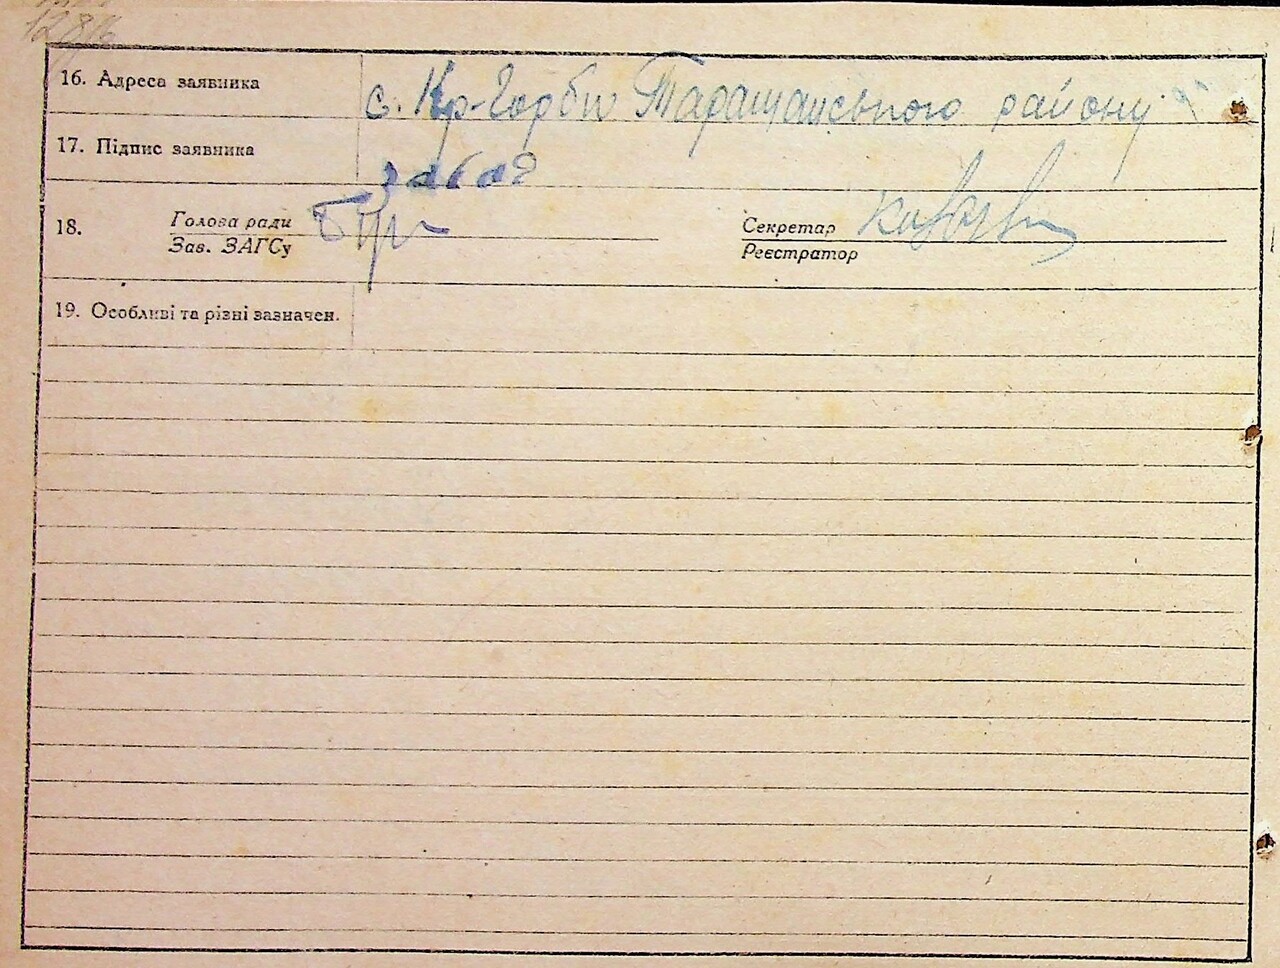 16. Адреса заявника
с. Кр-Горби Таращанського району
17. Підпис заявника
18.
Голова ради
Зав. ЗАГСу
Секретар
Реєстратор
19. Особливі та різні зазначен.